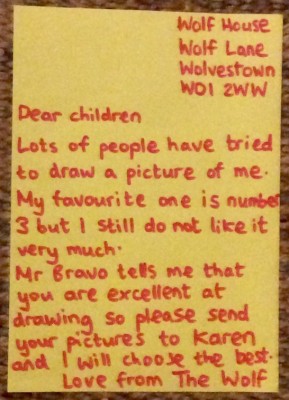 Wolf House
Wolf Lane
Wolvestown
WO1 2WW
Dear children
Lots of people have tried
to draw a picture of me.
My favourite one is number
3 but I still do not like it
very much.
Mr Bravo tells me that
you are excellent at
drawing so please send
your pictures to Karen
and I will choose the best.
Love from The Wolf